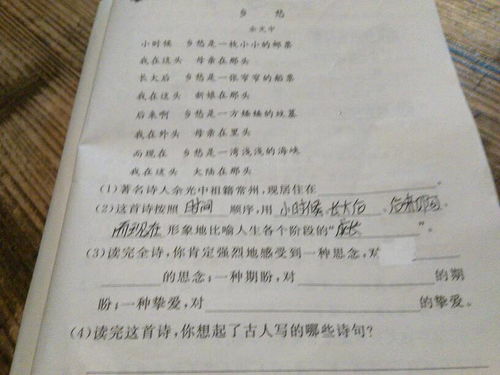 乡 愁
余光中
小时候 乡愁是一枚小小的邮票
我在这头 母亲在那头
长大后 乡愁是一张窄窄的船票
我在这头 新娘在那头
后来啊 乡愁是一方矮矮的坟墓
我在外头 母亲在里头
而现在 乡愁是一湾浅浅的海峡
我在这头 大陆在那头
(1)著名诗人余光中祖籍常州,现居住在 。
(2)这首诗按照 时间 顺序,用 小时候、长大后 、后来啊、
而现在 形象地比喻人生各个阶段的“ 成长 ”。
(3)读完全诗,你肯定强烈地感受到一种思念,对
的思念;一种期盼,对 的期
盼;一种挚爱,对 的挚爱。
(4)读完这首诗,你想起了古人写的哪些诗句?